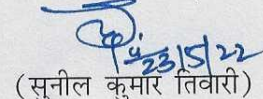 23/5/22
(सुनील कुमार तिवारी)